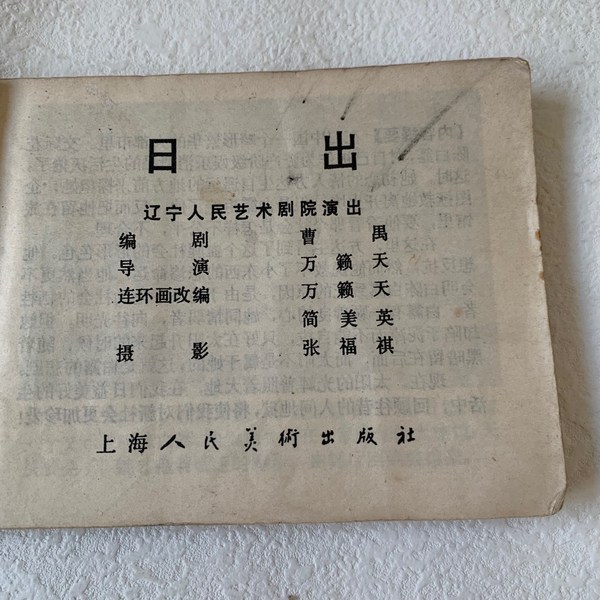 日 出
辽宁人民艺术剧院演出
编 剧 曹 禺
导 演 万 籁 天
连环画改编 万 籁 天
简 美 英
摄 影 张 福 祺
上海人民美術出版社